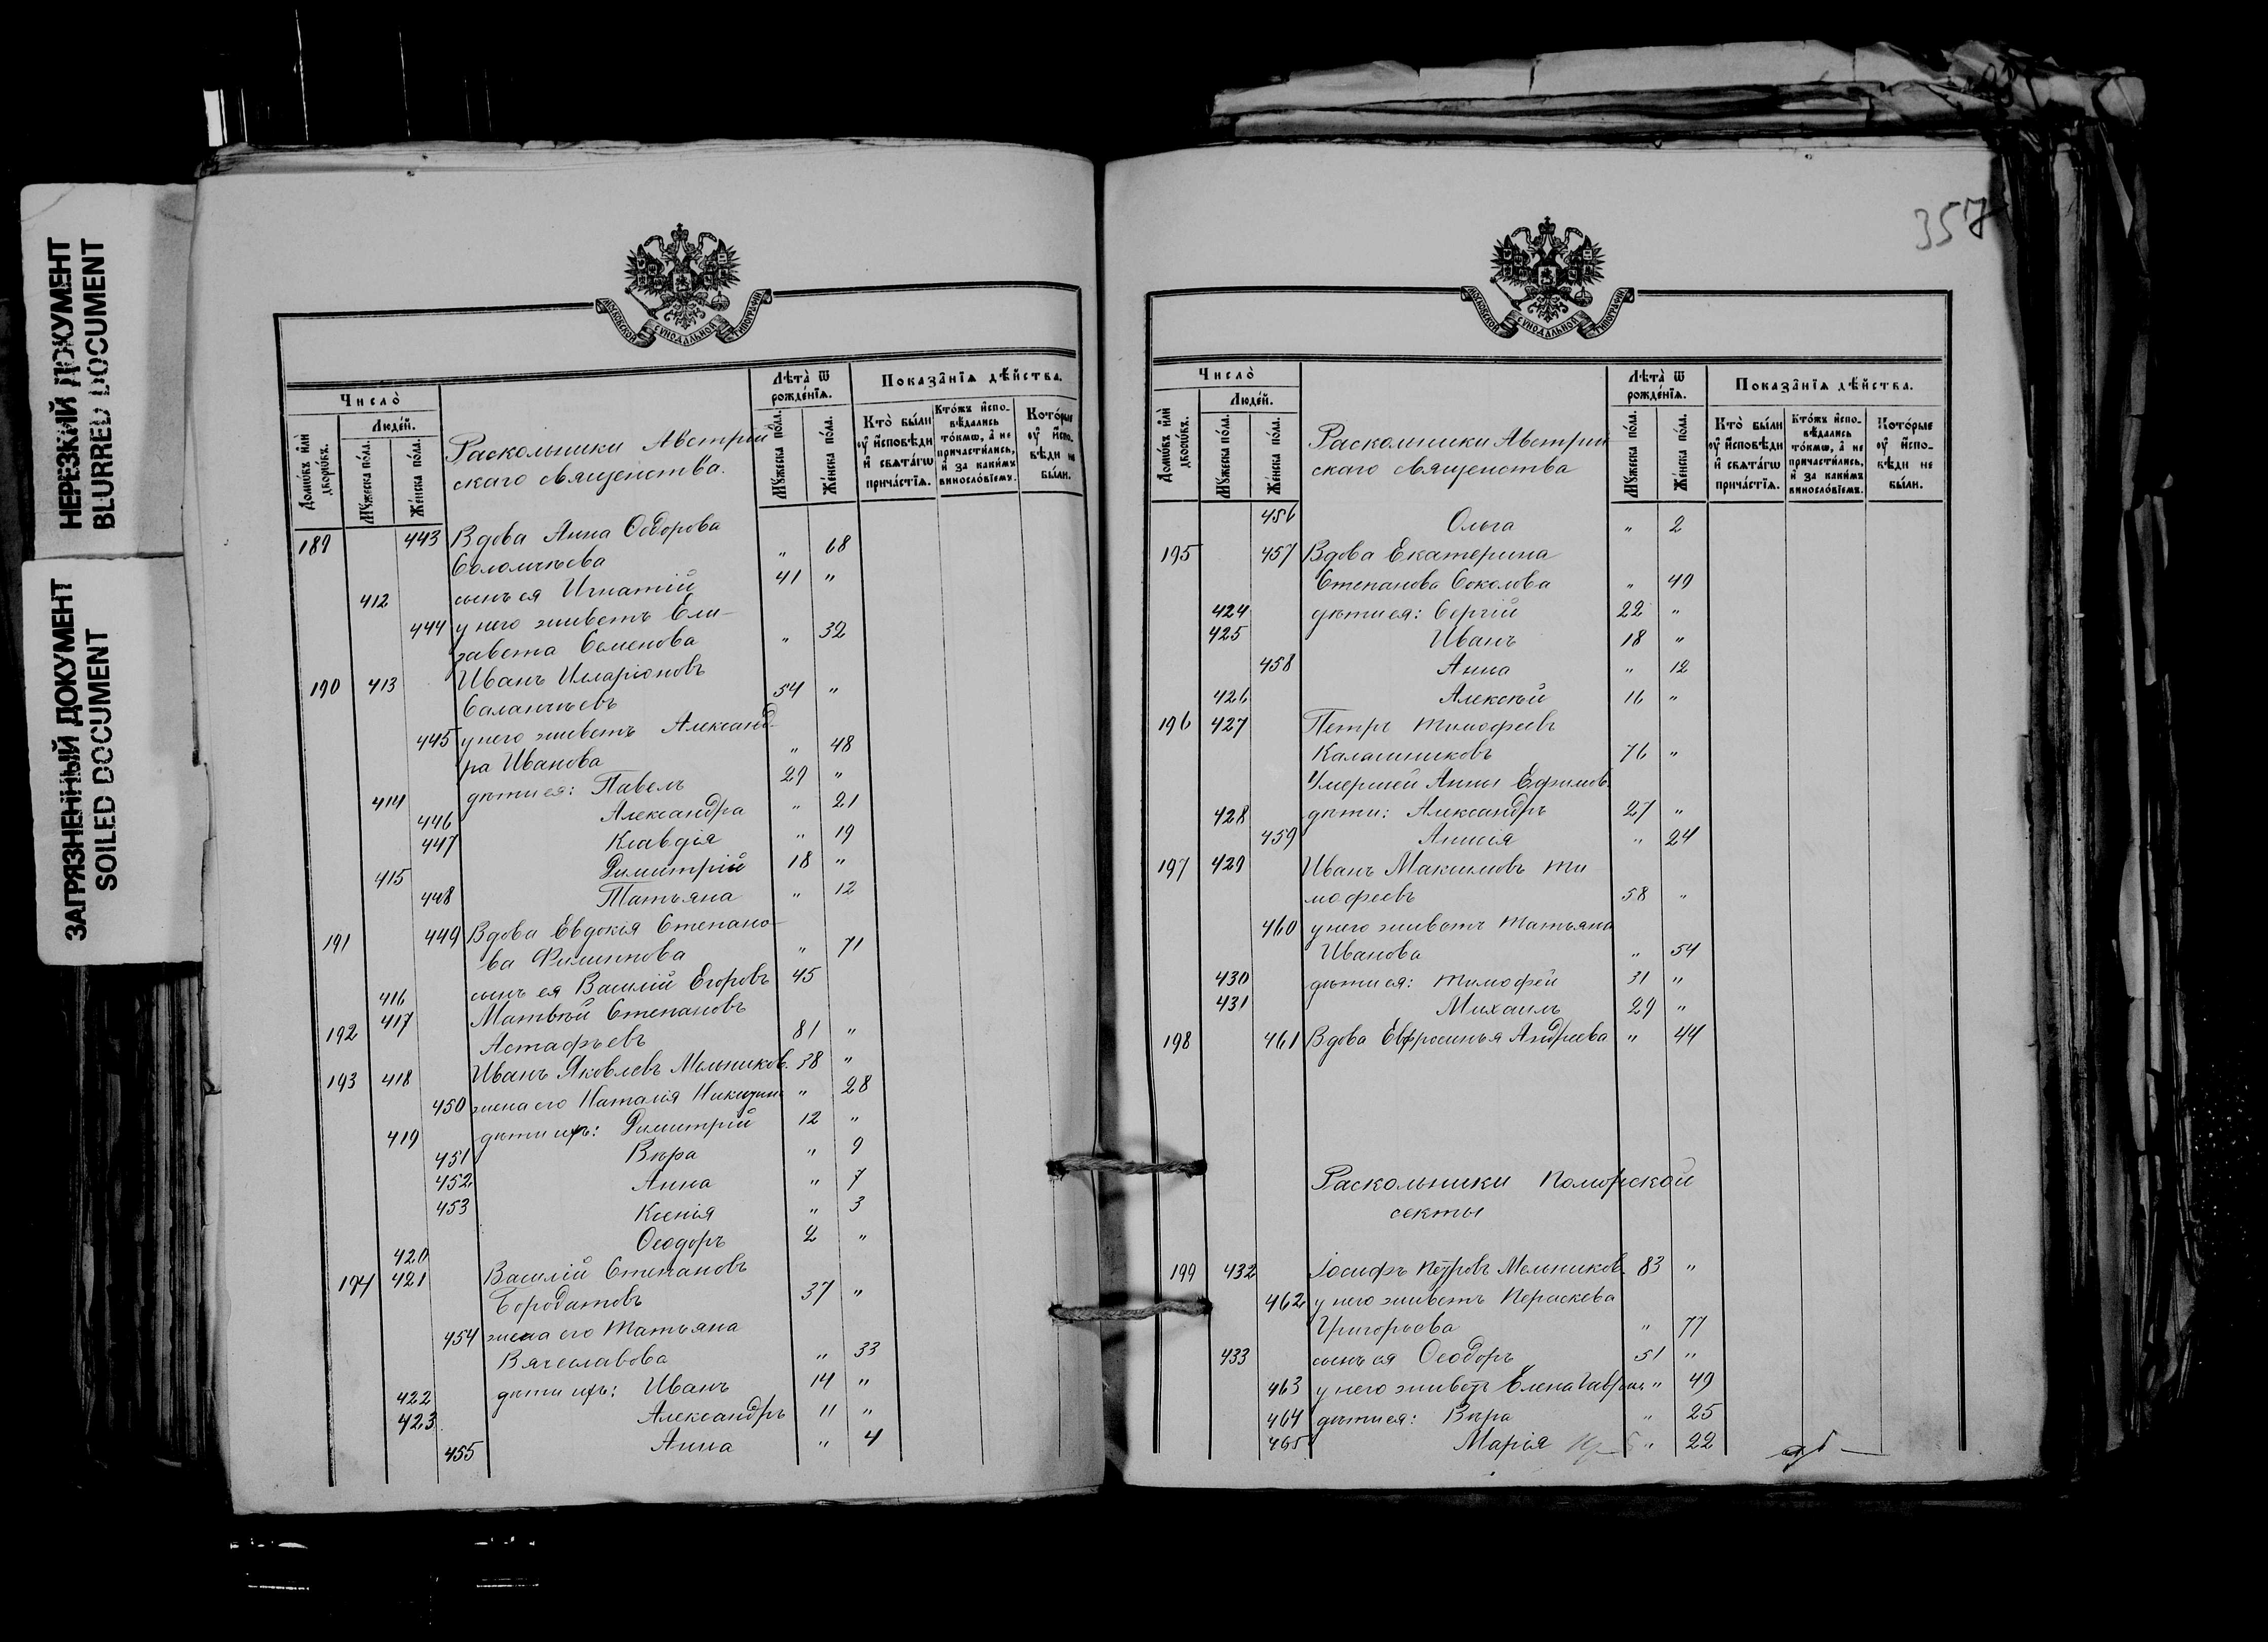 НЕРЕЗКИЙ ДОКУМЕНТ
BLURRED DOCUMENT
ЗАГРЯЗНЕННЫЙ ДОКУМЕНТ
SOILED DOCUMENT
МОСКОВСКОЙ СѴНОДАЛЬНОЙ ТИПОГРАФІИ
Число̀
Домѡ́въ и҆лѝ дворѡ́въ.
Люде́й.
Мꙋ́жеска по́ла.
Же́нска по́ла.
Раскольники Австрій-
скаго священства.
Лѣта̀ ѿ рожде́нїѧ.
Мꙋ́жеска по́ла.
Же́нска по́ла.
Показа̑нїѧ дѣ́йства.
Кто̀ бы́ли оу҆ и҆сповѣди и҆ свѧта́гѡ прича́стїѧ.
Кто́жъ и҆спо-вѣдались то́кмѡ, а҆ не причасти́лись, и҆ за каки́мъ винословїемъ.
Кото́рые оу҆ и҆спо-вѣди не бы́ли.
189 443 Вдова Анна Ѳедорова
Соломчѣева " 68
412 сынъ ея Игнатій 41 "
444 у него живетъ Ели-
завета Семенова " 32
190 413 Иванъ Иларіоновъ
Саланчѣевъ 54 "
445 у него живетъ Александ-
ра Иванова " 48
414 дѣти ея: Павелъ 29 "
446 Александра " 21
447 Клавдія " 19
415 Димитрій 18 "
448 Татьяна " 12
191 449 Вдова Евдокія Степано-
ва Филиппова " 71
416 сынъ ея Василій Егоровъ 45
192 417 Матвѣй Степановъ
Астафьевъ 81 "
193 418 Иванъ Яковлевъ Мельников. 38 "
450 жена его Наталія Никитин " 28
419 дѣти ихъ: Димитрій 12 "
451 Вѣра " 9
452 Анна " 7
453 Ксенія " 3
420 Ѳеодоръ 2 "
194 421 Василій Степановъ
Бородатовъ 37 "
454 жена его Татьяна
Вячеславова " 33
422 дѣти ихъ: Иванъ 14 "
423 Александръ 11 "
455 Анна " 4
357
МОСКОВСКОЙ СѴНОДАЛЬНОЙ ТИПОГРАФІИ
Число̀
Домѡ́въ и҆лѝ дворѡ́въ.
Люде́й.
Мꙋ́жеска по́ла.
Же́нска по́ла.
Раскольники Австрій
скаго священства
Лѣта̀ ѿ рожде́нїѧ.
Мꙋ́жеска по́ла.
Же́нска по́ла.
Показа̑нїѧ дѣ́йства.
Кто̀ бы́ли оу҆ и҆сповѣди и҆ свѧта́гѡ прича́стїѧ.
Кто́жъ и҆спо-вѣдались то́кмѡ, а҆ не причасти́лись, и҆ за каки́мъ винословїемъ.
Кото́рые оу҆ и҆спо-вѣди не бы́ли.
456 Ольга " 2
195 457 Вдова Екатерина
Степанова Соколова " 49
424 дѣти ея: Сергій 22 "
425 Иванъ 18 "
458 Анна " 12
426 Алексѣй 16 "
196 427 Петръ Тимофеевъ
Калашниковъ 76 "
Умершей Анны Ефимов.
428 дѣти: Александръ 27 "
459 Анисія " 24
197 429 Иванъ Максимовъ Ти
мофеевъ 58 "
460 у него живетъ Татьяна
Иванова " 54
430 дѣти ея: Тимофей 31 "
431 Михаилъ 29 "
198 461 Вдова Евфросинья Андреева " 44
Раскольники Поморской
секты
199 432 Іосифъ Петровъ Мельников. 83 "
462 у него живетъ Пераскева
Григорьева " 77
433 сынъ ея Ѳеодоръ 51 "
463 у него живетъ Елена Гаврил. " 49
464 дѣти ея: Вѣра " 25
465 Марія " 22